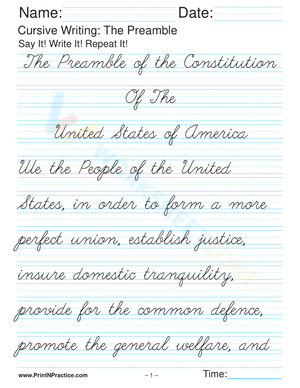 Name: Date:
Cursive Writing: The Preamble
Say It! Write It! Repeat It!
The Preamble of the Constitution
Of The
United States of America
We the People of the United
States, in order to form a more
perfect union, establish justice,
insure domestic tranquility,
provide for the common defence,
promote the general welfare, and
www.PrintNPractice.com – 1 – Time: